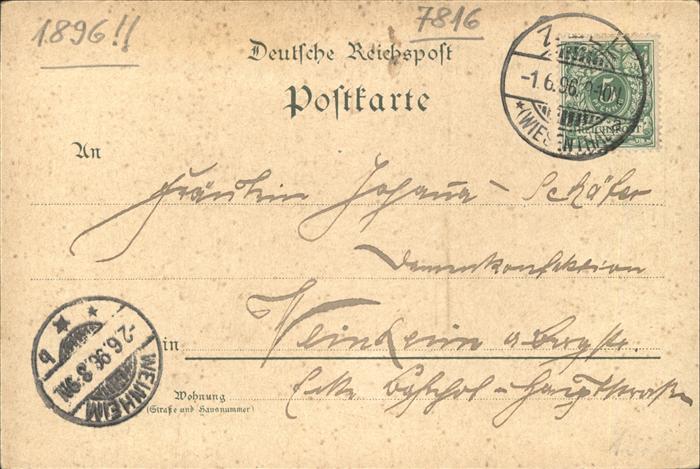 1896!!
7816
Deutsche Reichspost
Postkarte
-1.6.96.
(WIESENTHAL)
5
REICHSPOST
An
Fräulein Johanna Schäfer
Damenkonfektion
in Weinheim a Bergstr.
Wohnung
(Straße und Hausnummer)
Ecke Bahnhof- u Hauptstraße
WEINHEIM
-2.6.96.8-9N.
b